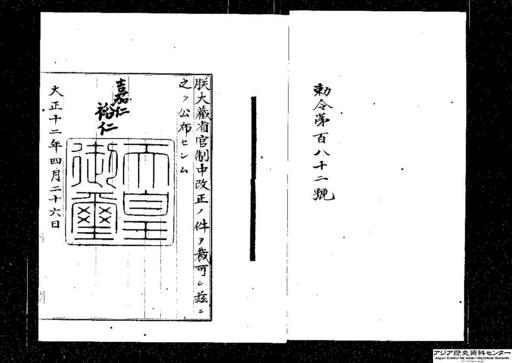 勅令第百八十二號
朕大藏省官制中改正ノ件ヲ裁可シ茲ニ
之ヲ公布セシム
嘉仁
裕仁
天皇
御璽
大正十二年四月二十六日
アジア歴史資料センター
Japan Center for Asian Historical Records